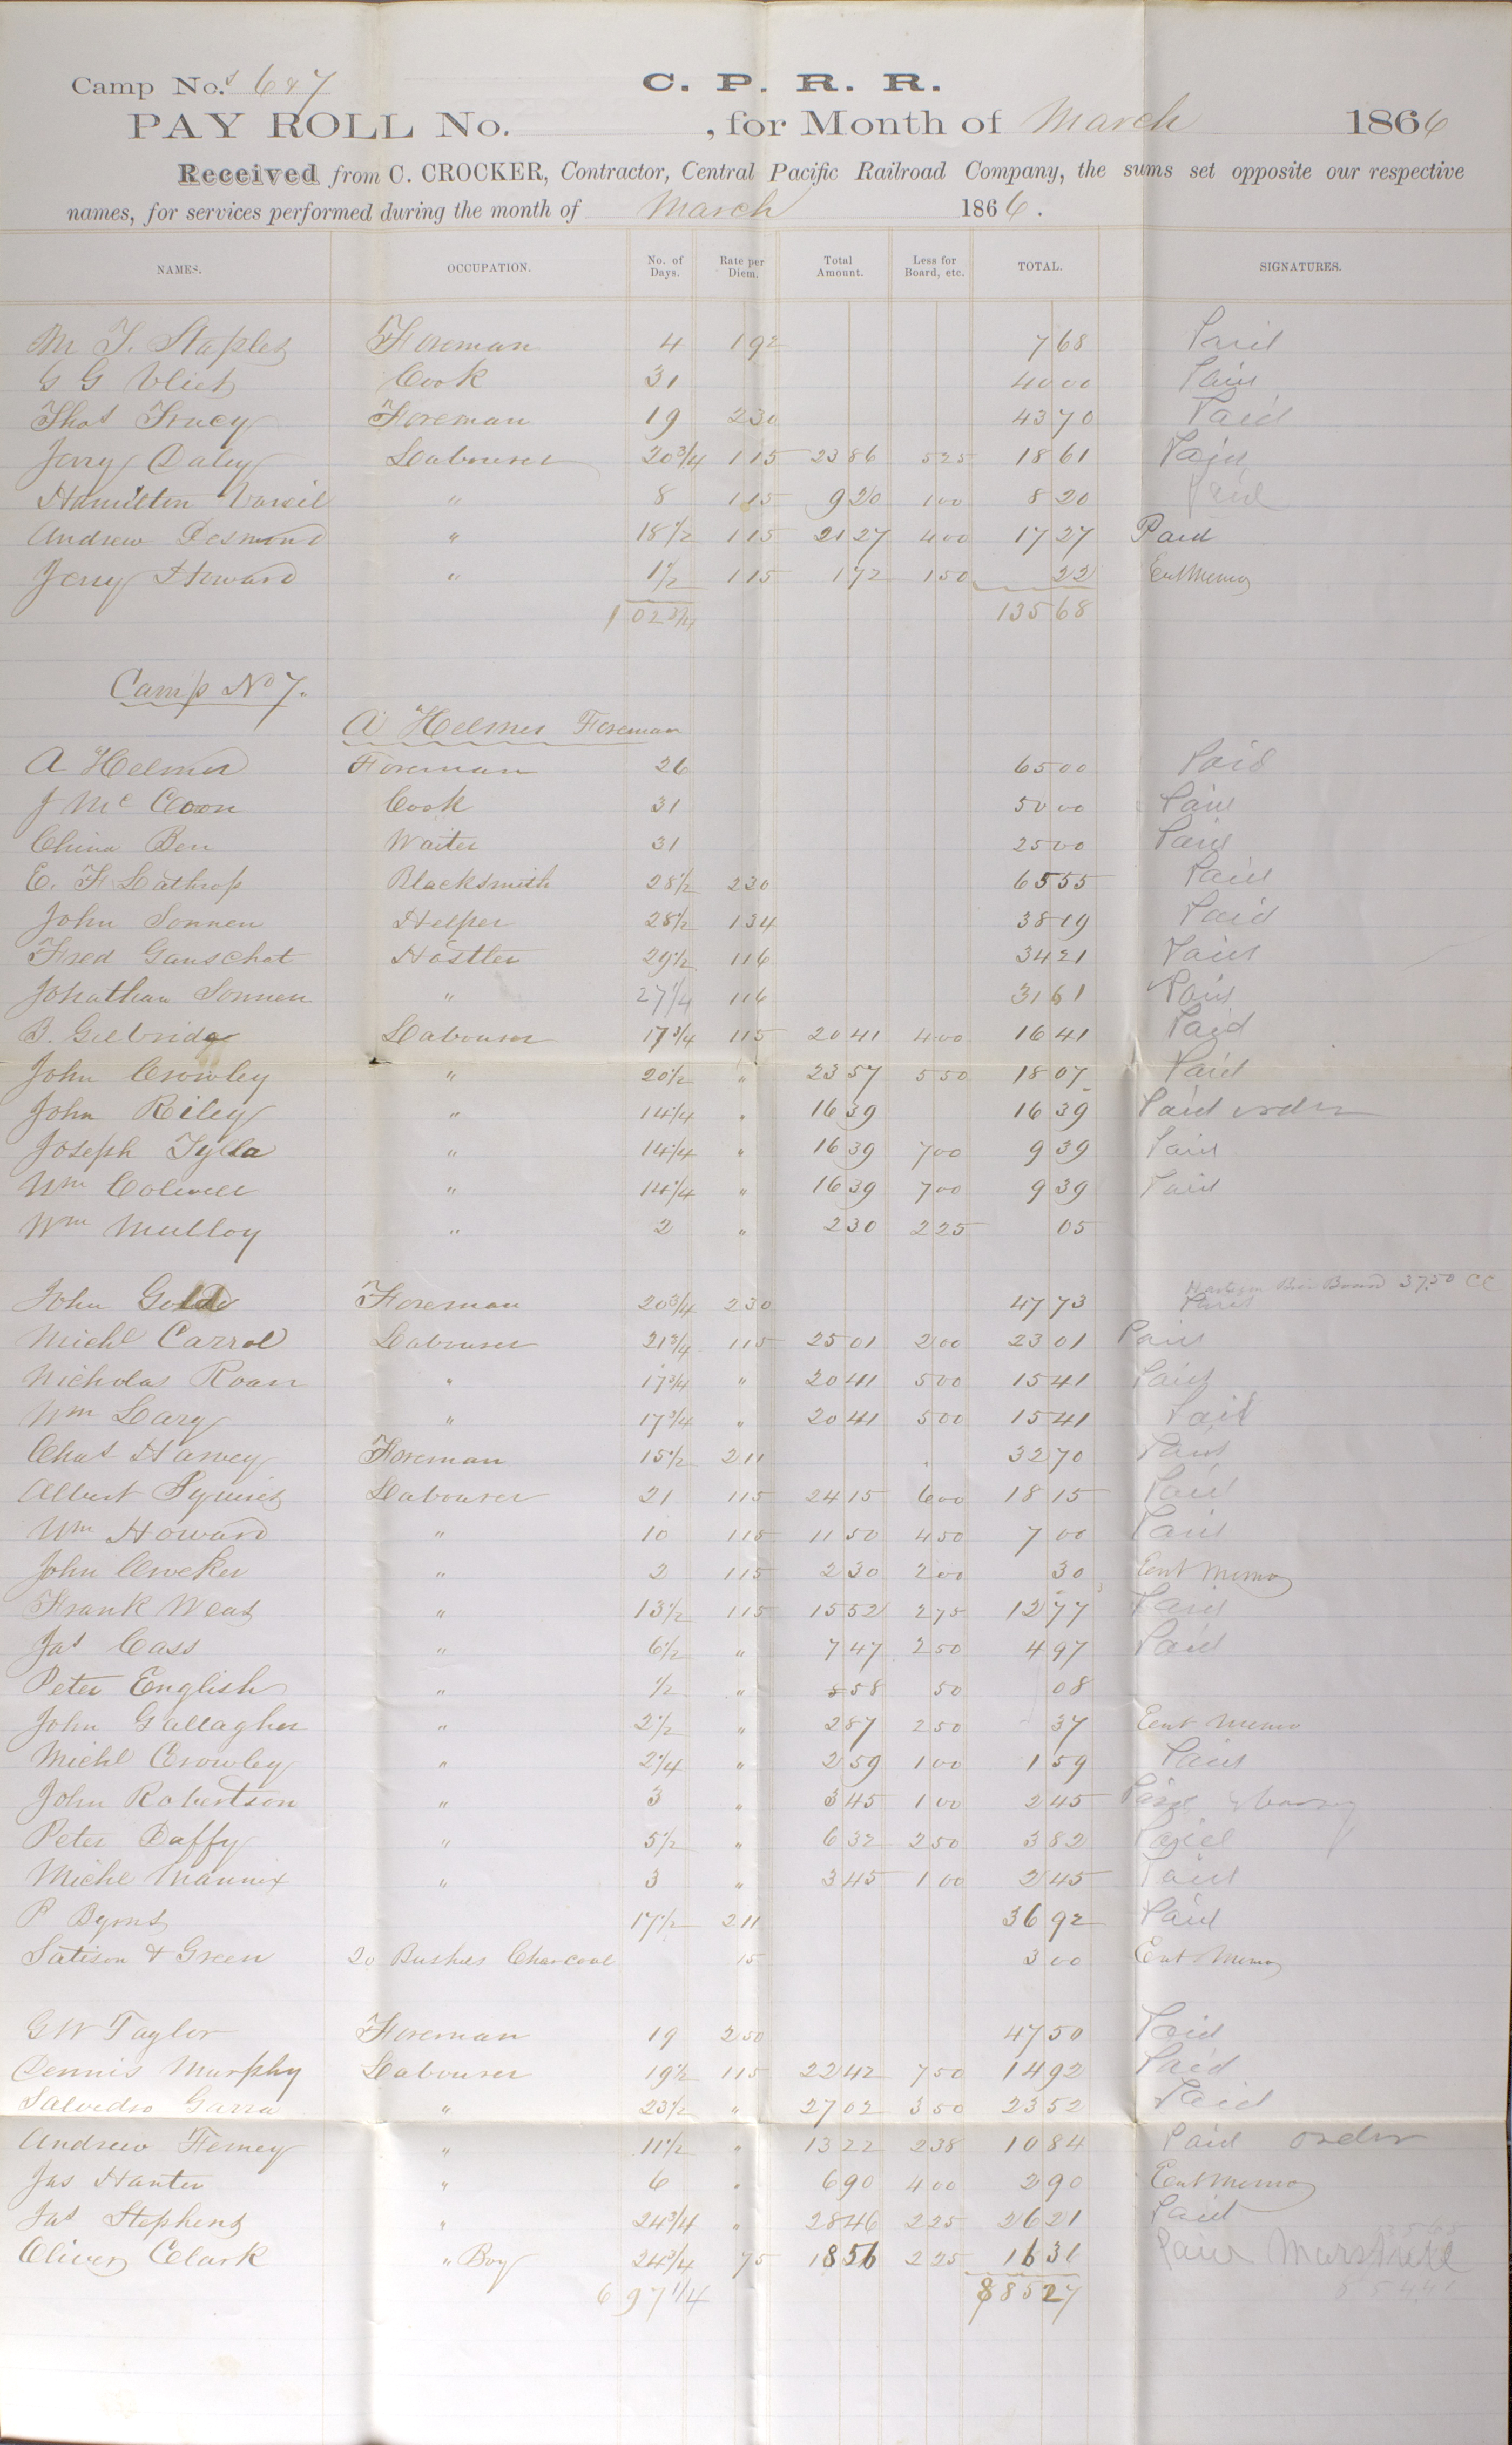 Camp No.s 6 & 7 C. P. R. R.
PAY ROLL No. , for Month of March 1866
Received from C. CROCKER, Contractor, Central Pacific Railroad Company, the sums set opposite our respective
names, for services performed during the month of March 1866.
NAMES. OCCUPATION. No. of Days. Rate per Diem. Total Amount. Less for Board, etc. TOTAL. SIGNATURES.
M T. Staples Foreman 4 192 7 68 Paid
G G Vliet Cook 31 40 00 Paid
Thos Tracy Foreman 19 230 43 70 Paid
Jerry Daley Labourer 20 3/4 115 23 86 5 25 18 61 Paid
Hamilton " 8 115 9 20 1 00 8 20 Paid
Andrew Desmond " 18 1/2 115 21 27 4 00 17 27 Paid
Jerry Howard " 1 1/2 115 1 72 1 50 22 Ent Memo
102 3/4 135 68
Camp No 7.
A Helmer Foreman
A Helmer Foreman 26 65 00 Paid
J Mc Coon Cook 31 50 00 Paid
China Ben Waiter 31 25 00 Paid
E. F Lathrop Blacksmith 28 1/2 230 65 55 Paid
John Sonnen Helper 28 1/2 134 38 19 Paid
Fred Ganschat Hostler 29 1/2 116 34 21 Paid
Johathan Sonnen " 27 1/4 116 31 61 Paid
B. Gilbride Labourer 17 3/4 115 20 41 4 00 16 41 Paid
John Crowley " 20 1/2 " 23 57 5 50 18 07 Paid
John Riley " 14 1/4 " 16 39 16 39 Paid order
Joseph Tylla " 14 1/4 " 16 39 7 00 9 39 Paid
Wm Colwell " 14 1/4 " 16 39 7 00 9 39 Paid
Wm Mulloy " 2 " 2 30 2 25 05
Board 37.50 CC
John Golde Foreman 20 3/4 230 47 73 Paid
Michl Carrol Labourer 21 3/4 115 25 01 2 00 23 01 Paid
Nicholas Roan " 17 3/4 " 20 41 5 00 15 41 Paid
Wm Lary " 17 3/4 " 20 41 5 00 15 41 Paid
Chas Harvey Foreman 15 1/2 211 32 70 Paid
Albert Squires Labourer 21 115 24 15 6 00 18 15 Paid
Wm Howard " 10 115 11 50 4 50 7 00 Paid
John " 2 115 2 30 2 00 30 Ent Memo
Frank Weas " 13 1/2 115 15 52 2 75 12 77 Paid
Jas Cass " 6 1/2 " 7 47 2 50 4 97 Paid
Peter English " 1/2 " 58 50 08
John Gallagher " 2 1/2 " 2 87 2 50 37 Ent Memo
Michl Crowley " 2 1/4 " 2 59 1 00 1 59 Paid
John Robertson " 3 " 3 45 1 00 2 45 Paid
Peter Duffy " 5 1/2 " 6 32 2 50 3 82 Paid
Michl Mannix " 3 " 3 45 1 00 2 45 Paid
P Byrns 17 1/2 211 36 92 Paid
Satison & Green 20 Bushels Charcoal 15 3 00 Ent Memo
G W Taylor Foreman 19 250 47 50 Paid
Dennis Murphy Labourer 19 1/2 115 22 42 7 50 14 92 Paid
Salvedro Garra " 23 1/2 " 27 02 3 50 23 52 Paid
Andrew Ferney " 11 1/2 " 13 22 2 38 10 84 Paid order
Jas Hanter " 6 " 6 90 4 00 2 90 Ent Memo
Jas Stephens " 24 3/4 " 28 46 2 25 26 21 Paid
Oliver Clark " Boy 24 3/4 75 18 56 2 25 16 31 Paid
697 1/4 885 27